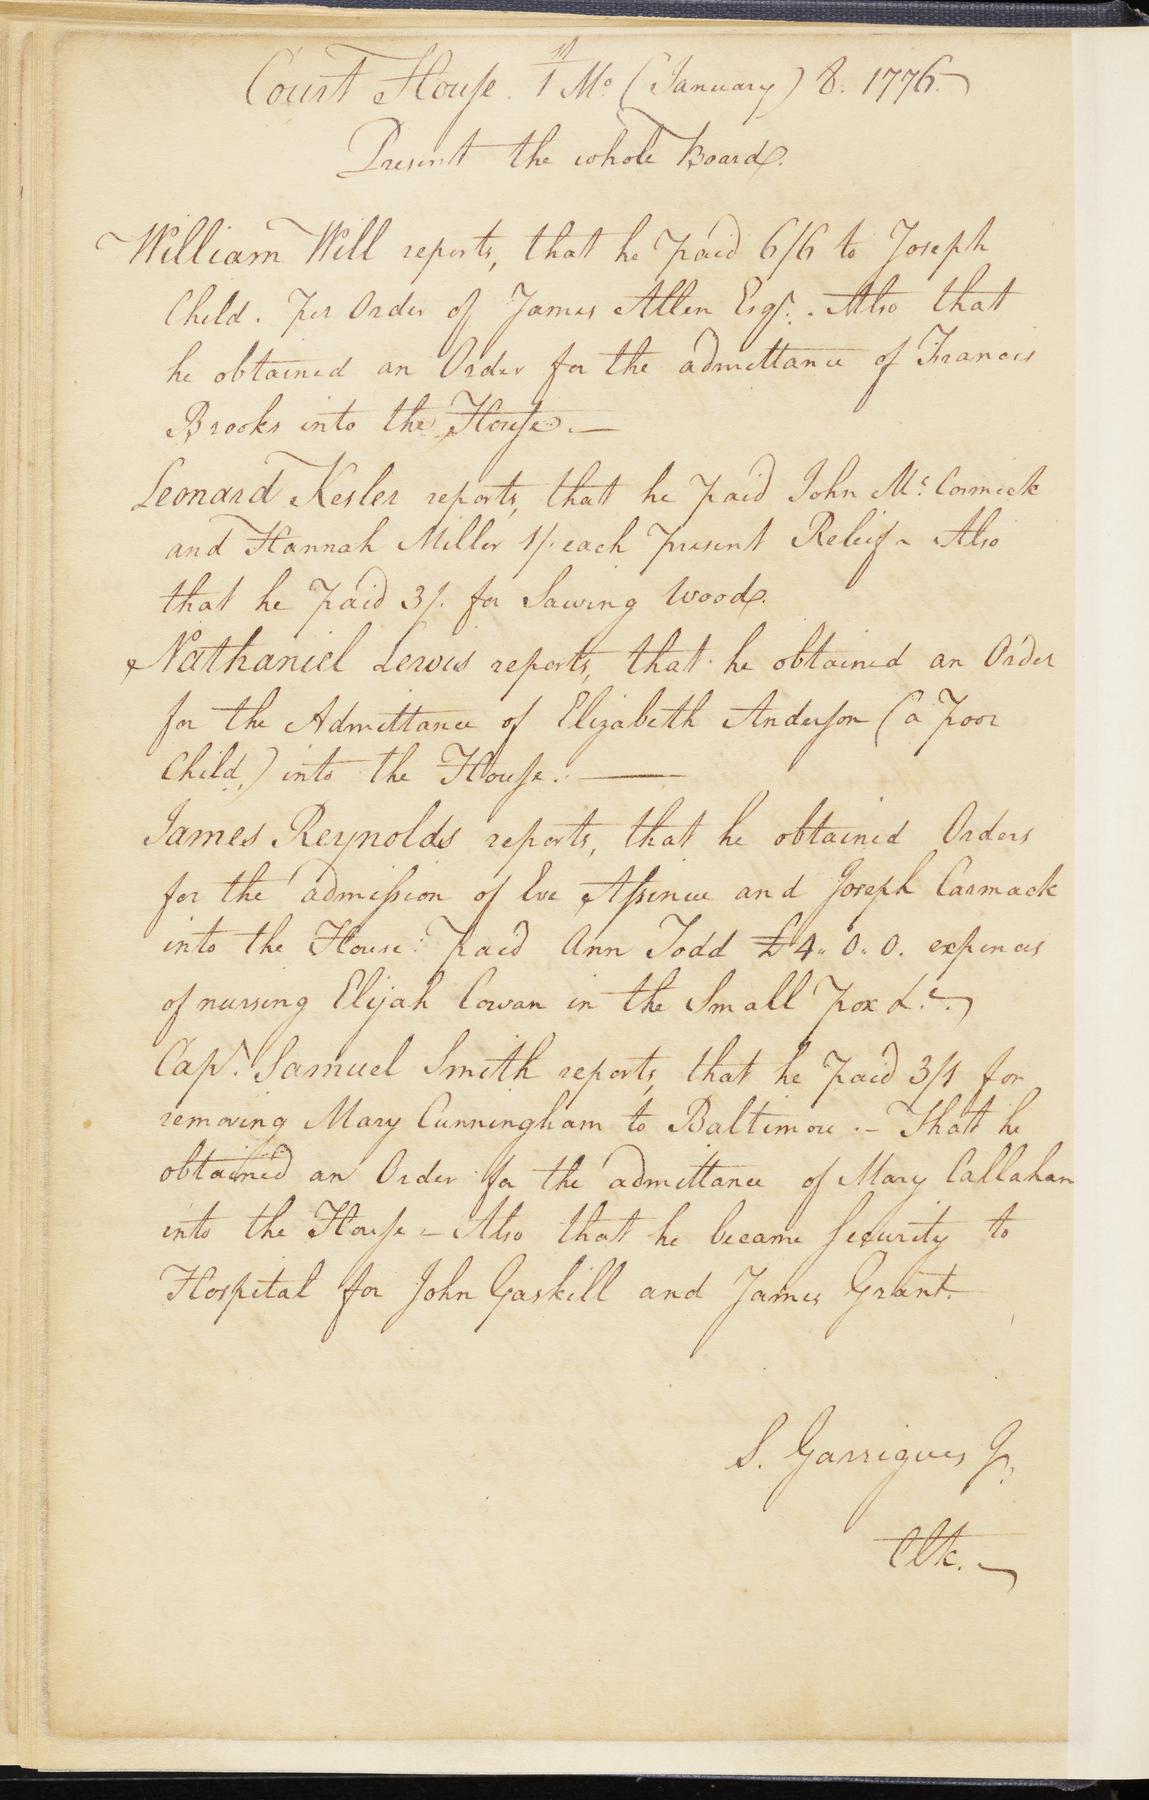 Court House. 1st Mo (January) 8. 1776.
Present the whole Board.
William Will reports, that he paid 6/6 to Joseph
Child. per Order of James Allen Esqr. Also that
he obtained an Order for the admittance of Francis
Brooks into the House.—
Leonard Kesler reports, that he paid John Mc. Cormick
and Hannah Miller 1/. each present Releif - Also
that he paid 3/. for Sawing Wood.
Nathaniel Lewis reports, that he obtained an Order
for the Admittance of Elizabeth Anderson (a poor
Child,) into the House. —
James Reynolds reports, that he obtained Orders
for the admission of Eve and Joseph Carmack
into the House: paid Ann Todd £4. 0. 0. expences
of nursing Elijah Cowan in the Small pox &c.
Capt. Samuel Smith reports, that he paid 3/1 for
removing Mary Cunningham to Baltimore. - That he
obtained an Order for the admittance of Mary Callahan
into the House - Also that he became Security to
Hospital for John Gaskill and James Grant.
S. Garrigues Jr.
Clk.